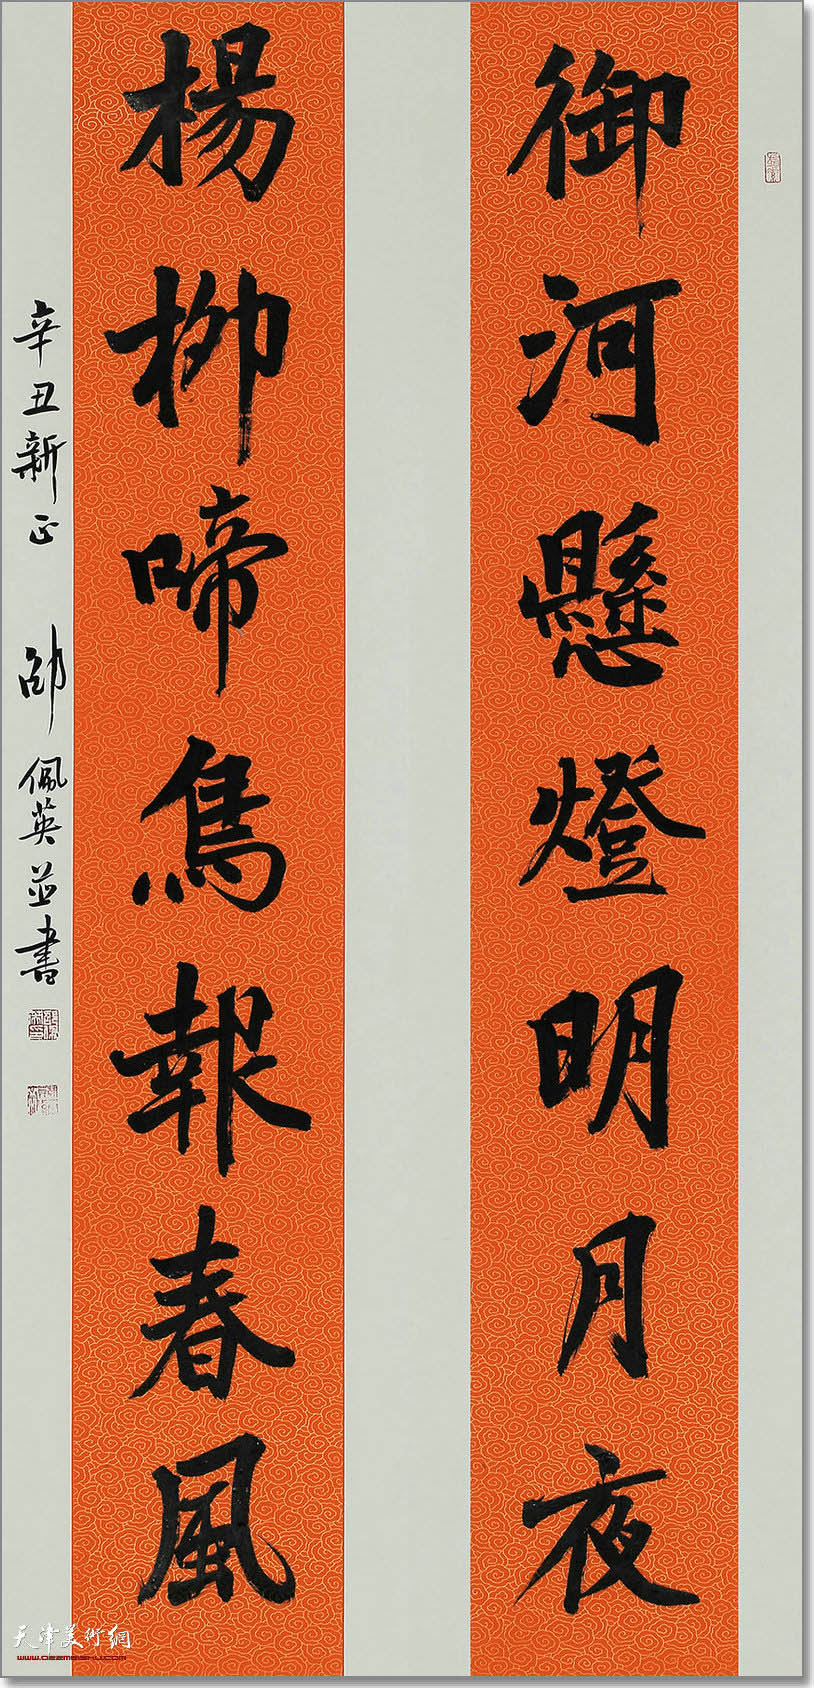 御河懸燈明月夜
楊柳啼鳥報春風
辛丑新正 邵佩英並書
天津美術網